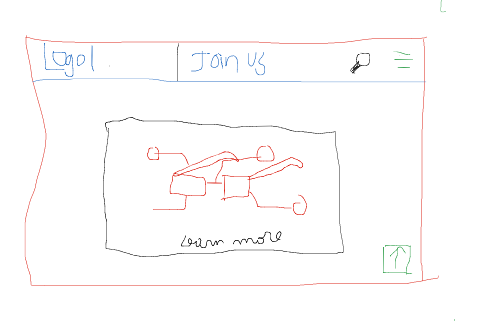 Logo1
Join us
Learn more